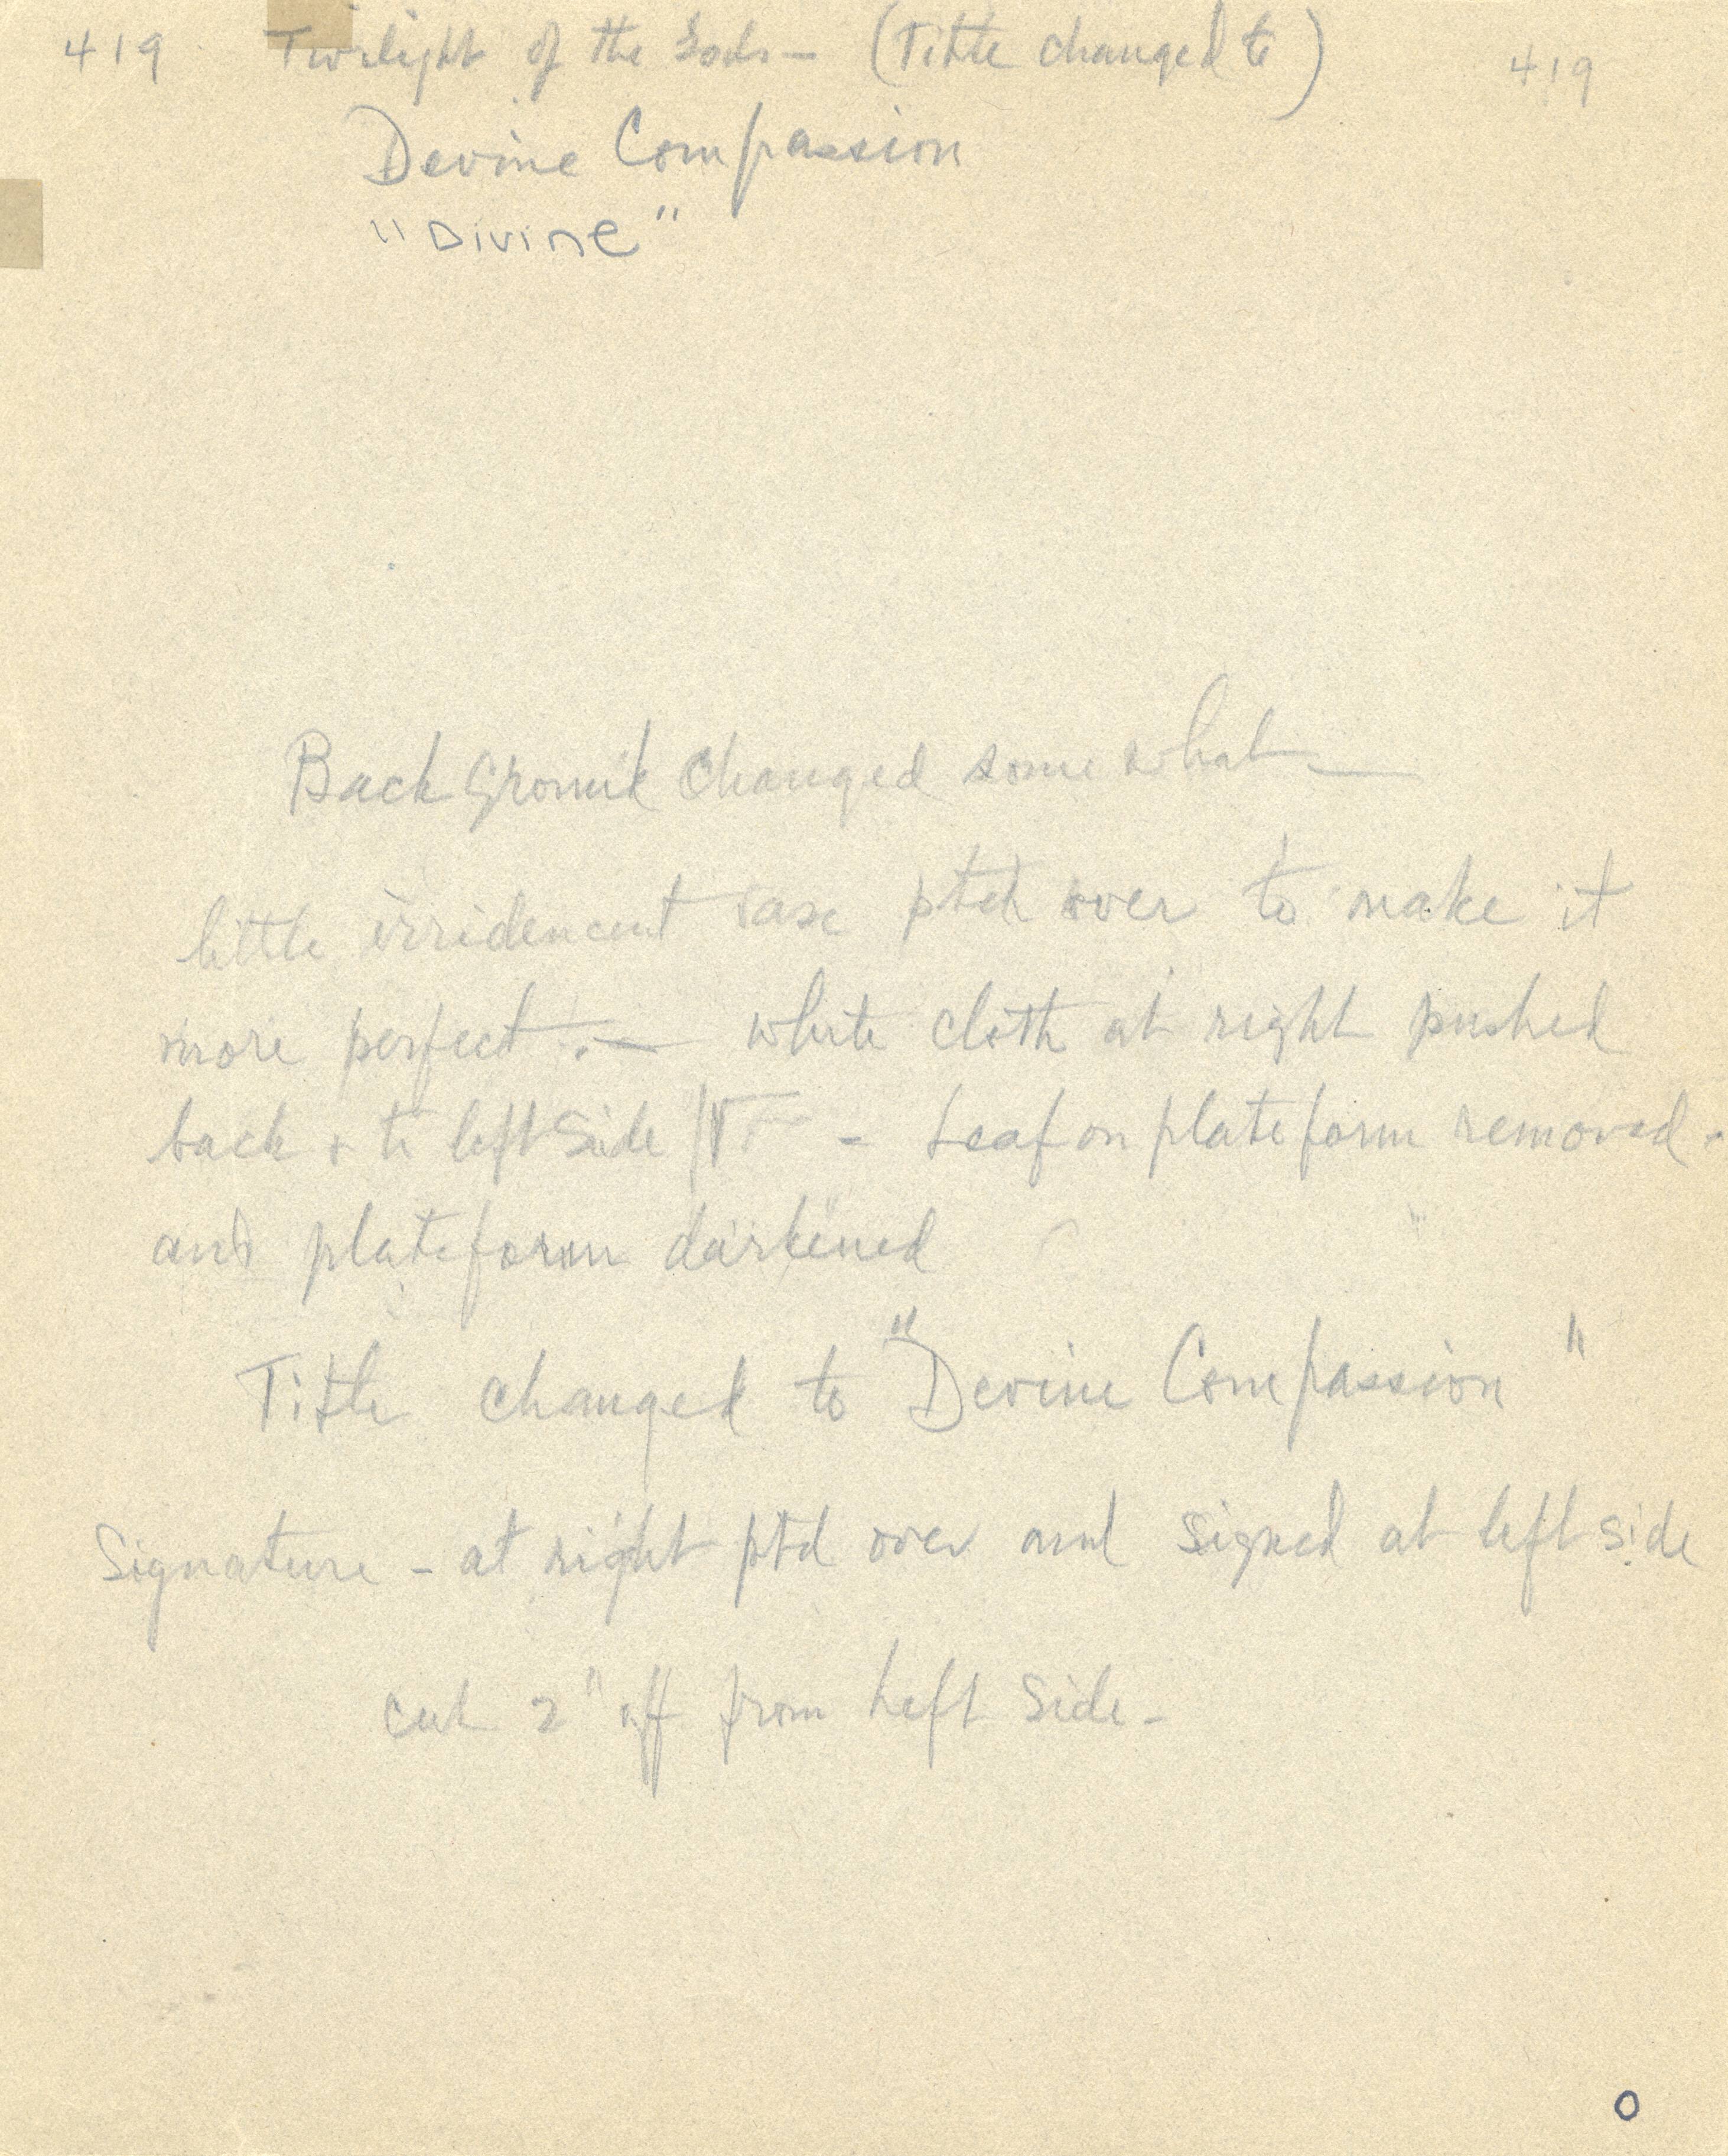 419 Twilight of the Gods — (Title changed to) 419
Devine Compassion
"Divine"
Back Ground Changed some what —
little irridencent vase ptd over to make it
more perfect. — white cloth at right pushed
back + to left side - Leaf on plateform removed -
and plateform darkened
Title changed to "Devine Compassion"
Signature - at right ptd over and signed at left side
cut 2" off from Left Side -
O